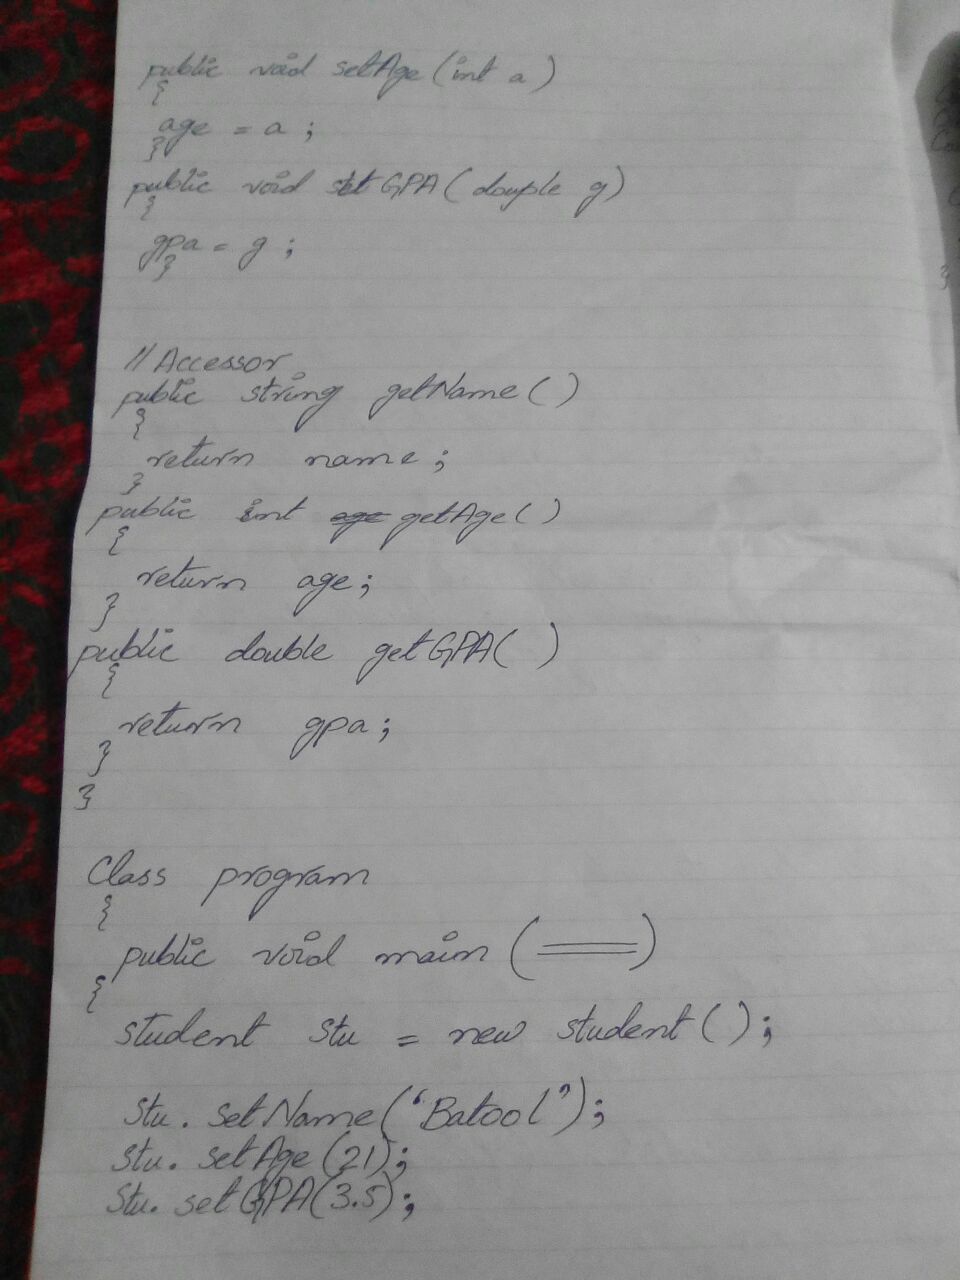 public void setAge(int a)
{
age = a ;
}
public void setGPA(douple g)
{
gpa = g ;
}
// Accessor
public string getName()
{
return name ;
}
public int age getAge()
{
return age ;
}
public double getGPA( )
{
return gpa ;
}
}
Class program
{
public void main ( )
{
student stu = new student( ) ;
stu . setName('Batool') ;
stu . setAge(21) ;
stu . setGPA(3.5) ;